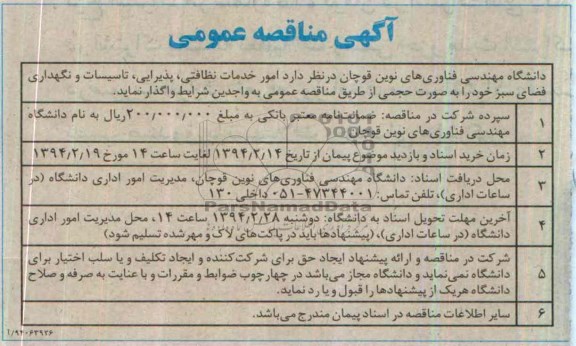 آگهی مناقصه عمومی
دانشگاه مهندسی فناوری‌های نوین قوچان درنظر دارد امور خدمات نظافتی، پذیرایی، تاسیسات و نگهداری
فضای سبز خود را به صورت حجمی از طریق مناقصه عمومی به واجدین شرایط واگذار نماید.
۱ سپرده شرکت در مناقصه: ضمانت‌نامه معتبر بانکی به مبلغ ۲۰۰,۰۰۰,۰۰۰ ریال به نام دانشگاه
مهندسی فناوری‌های نوین قوچان
۲ زمان خرید اسناد و بازدید موضوع پیمان از تاریخ ۱۳۹۴/۲/۱۴ لغایت ساعت ۱۴ مورخ ۱۳۹۴/۲/۱۹
۳ محل دریافت اسناد: دانشگاه مهندسی فناوری‌های نوین قوچان، مدیریت امور اداری دانشگاه (در
ساعات اداری)، تلفن تماس: ۴۷۳۴۴۰۰۱-۰۵۱ داخلی ۱۳۰
ParsNamadData
۴ آخرین مهلت تحویل اسناد به دانشگاه: دوشنبه ۱۳۹۴/۲/۲۸ ساعت ۱۴، محل مدیریت امور اداری
دانشگاه (در ساعات اداری)، (پیشنهادها باید در پاکت‌های لاک و مهر شده تسلیم شود)
۵ شرکت در مناقصه و ارائه پیشنهاد ایجاد حق برای شرکت‌کننده و ایجاد تکلیف و یا سلب اختیار برای
دانشگاه نمی‌نماید و دانشگاه مجاز می‌باشد در چهارچوب ضوابط و مقررات و با عنایت به صرفه و صلاح
دانشگاه هریک از پیشنهادها را قبول و یا رد نماید.
۶ سایر اطلاعات مناقصه در اسناد پیمان مندرج می‌باشد.
۹۴۰۶۳۹۲۶/آ